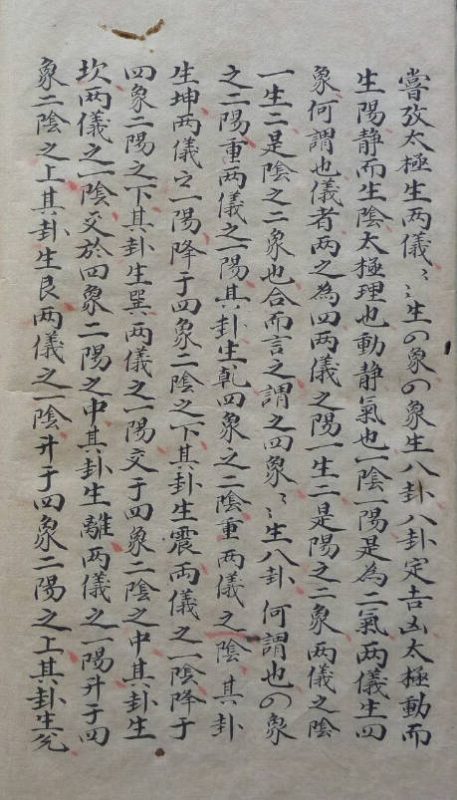 嘗攷太極生两儀〻〻生の象の象生八卦八卦定吉凶太極動而
生陽静而生陰太極理也動静氣也一陰一陽是為二氣两儀生四
象何謂也儀者两之為四两儀之陽一生二是陽之二象两儀之陰
一生二是陰之二象也合而言之謂之四象〻〻生八卦何謂也の象
之二陽重两儀之一陽其卦生乹四象之二陰重两儀之一陰其卦
生坤两儀之一陽降于四象二陰之下其卦生震两儀之一陰降于
四象二陽之下其卦生巽两儀之一陽交于四象二陰之中其卦生
坎两儀之一陰交於四象二陽之中其卦生離两儀之一陽升于四
象二陰之上其卦生艮两儀之一陰升于四象二陽之上其卦生兊